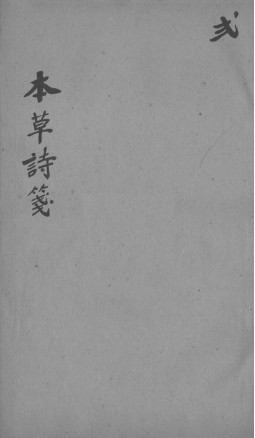 弍
本草詩箋